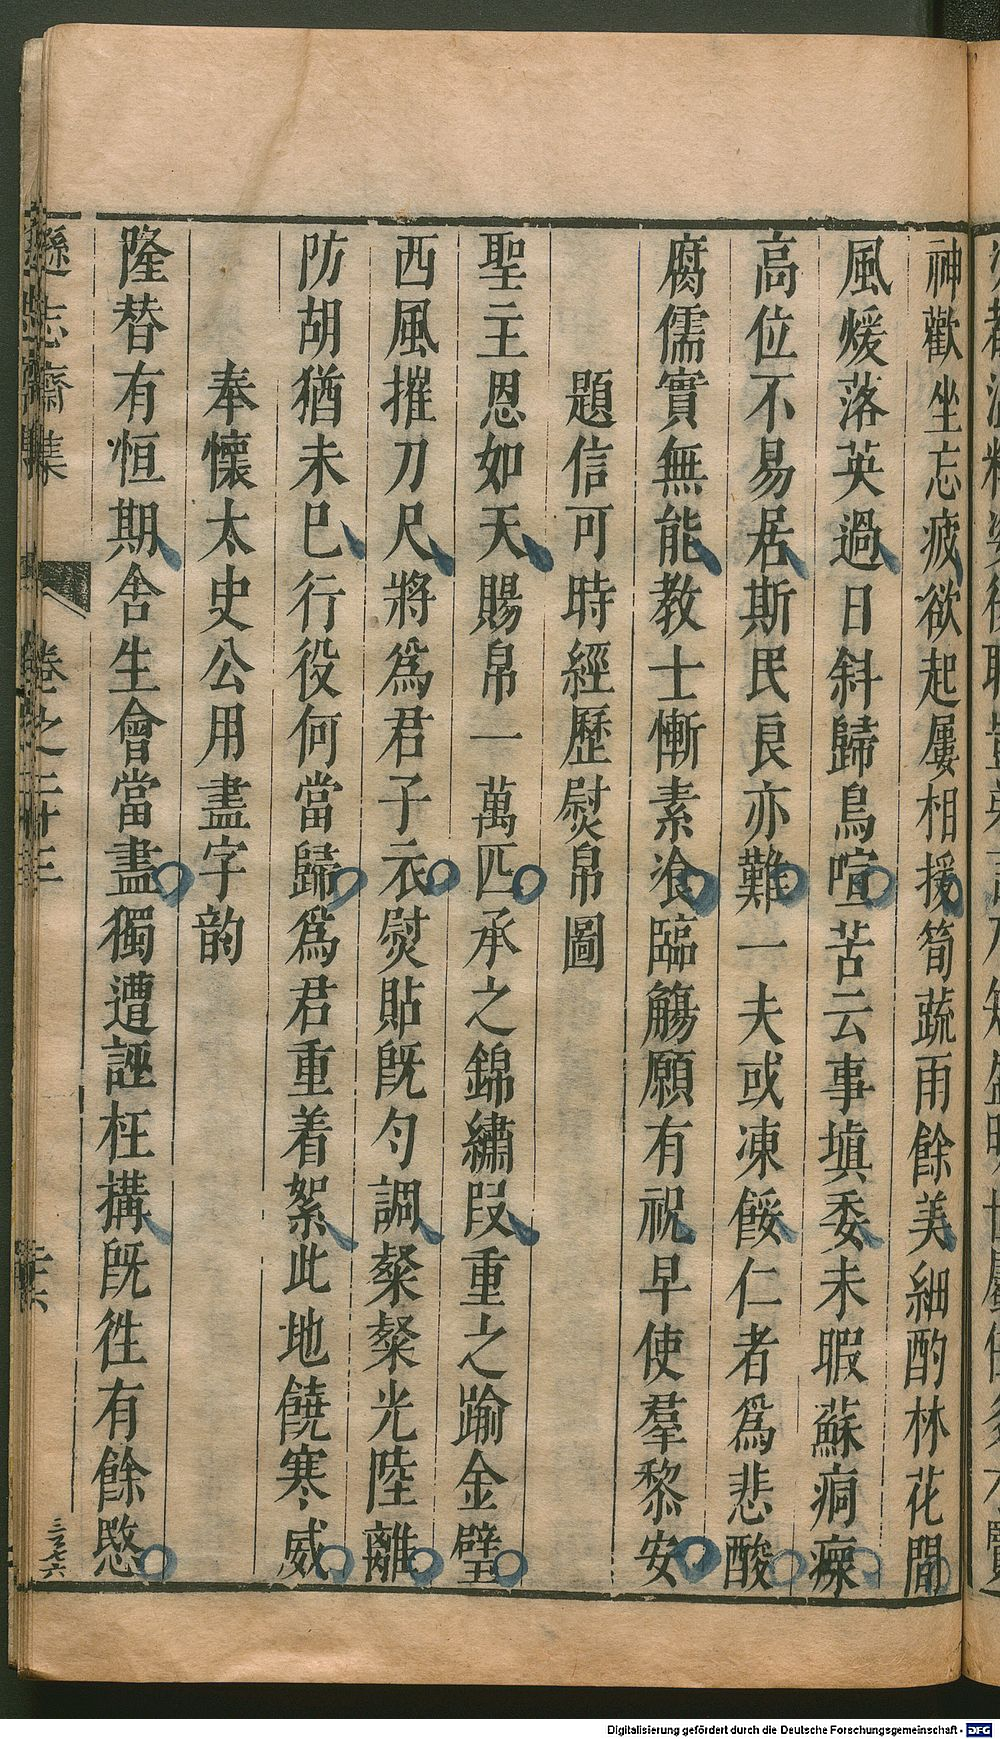 神歡坐忘疲欲起屢相援筍蔬雨餘美細酌林花間
風煖落英過日斜歸鳥喧苦云事填委未暇蘇痌瘝
高位不易居斯民良亦難一夫或凍餒仁者爲悲酸
腐儒實無能教士慚素飡臨觴願有祝早使羣黎安
題信可時經歷熨帛圖
聖主恩如天賜帛一萬匹承之錦繡段重之踰金璧
西風摧刀尺將爲君子衣熨貼旣勻調粲粲光陸離
防胡猶未巳行役何當歸爲君重着絮此地饒寒威
奉懷太史公用盡字韵
隆替有恒期舍生會當盡獨遭誣枉搆旣徃有餘愍
遜志齋集
卷之二十三
三三七六
Digitalisierung gefördert durch die Deutsche Forschungsgemeinschaft - DFG